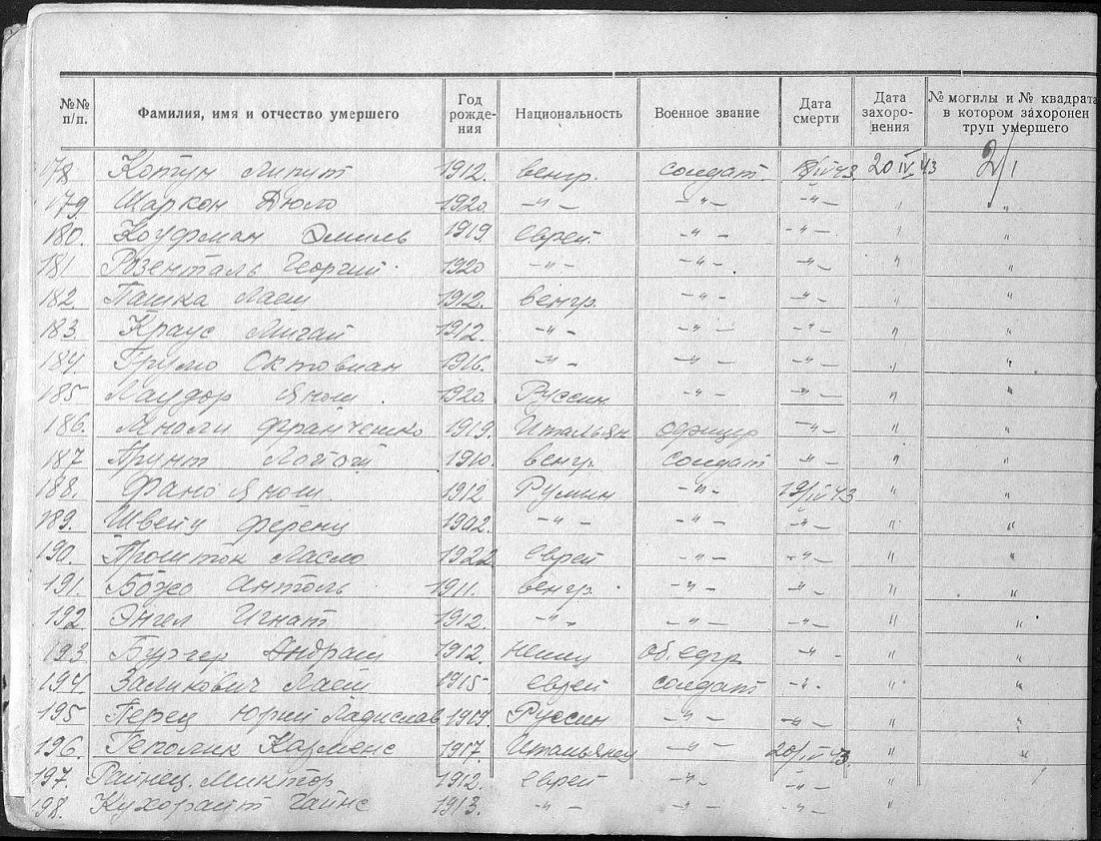 №№ п/п. Фамилия, имя и отчество умершего Год рожде- ния Национальность Военное звание Дата смерти Дата захоро- нения № могилы и № квадрата в котором захоронен труп умершего
178. Коптун 1912. венгр. солдат 18/IV 43. 20 IV 43 2/1
179. Маркон Дюло 1920. -"- -"- -"- " "
180. Коуфман Эмиль 1919. еврей -"- -"- " "
181 Розенталь Георгий. 1920 -"- -"- -"- " "
182. Пашка Лаеш 1912. венгр. -"- -"- " "
183. Краус Михай 1912. -"- -"- -"- " "
184. Грумо Октовиан 1916. -"- -"- -"- " "
185 Янош. 1920. Руссин -"- -"- " "
186. 1919. Итальян офицер -"- " "
187 Грунт 1910. венгр. солдат -"- " "
188. Фано Янош. 1912 Румын -"- 19/IV 43 " "
189. Швейц Ференц 1902. -"- -"- -"- " "
190. Ласло 1922 еврей -"- -"- " "
191. Божо Антоль 1911. венгр. -"- -"- " "
192 Энгел Игнат 1912. -"- -"- -"- " "
193. Бургер Андраш 1912. немец об. ефр. -"- " "
194. Заликович Лаеш 1915 еврей солдат -"- " "
195 Перец Юрий Ладислав 1919. Руссин -"- -"- " "
196. Геполик 1917. Итальянец -"- 20/IV 43. " "
197. Райнец. Миктор 1912. еврей -"- -"- "
198. Кухорайт Гайнс 1913. -"- -"- -"- "